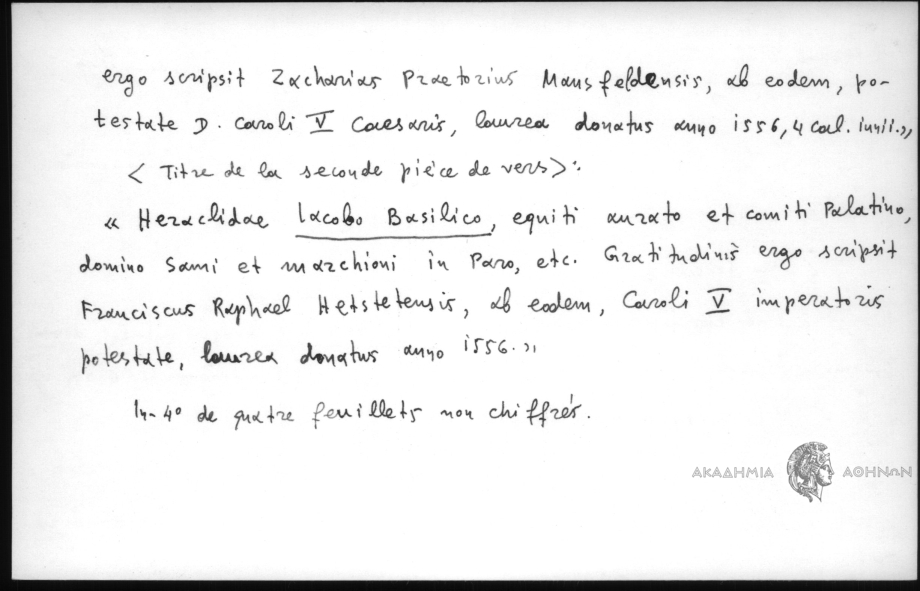 ergo scripsit Zacharias Praetorius Mansfeldensis, ab eodem, po-
testate D. Caroli V Caesaris, laurea donatus anno 1556, 4 cal. iunii.»
< Titre de la seconde pièce de vers>:
« Heraclidae Iacobo Basilico, equiti aurato et comiti Palatino,
domino Sami et marchioni in Paro, etc. Gratitudinis ergo scripsit
Franciscus Raphael Hetstetensis, ab eodem, Caroli V imperatoris
potestate, laurea donatus anno 1556.»
In-4º de quatre feuillets non chiffrés.
ΑΚΑΔΗΜΙΑ ΑΘΗΝΩΝ